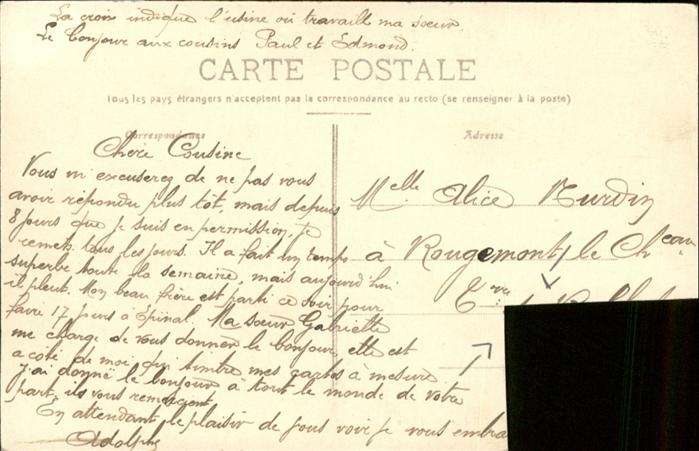 La croix indique l'usine où travaill ma soeur
Le bonjour aux cousins Paul et Edmond.
CARTE POSTALE
Tous les pays étrangers n'acceptent pas la correspondance au recto (se renseigner à la poste)
Correspondance
Adresse
Chère Cousine
Vous m'excuserez de ne pas vous
avoir répondu plus tôt, mais depuis
8 jours que je suis en permission, je
remets tous les jours. Il a fait un temps
superbe toute la semaine, mais aujourd'hui
il pleut. Mon beau frère est parti ce soir pour
faire 17 jours à Epinal. Ma soeur Gabrielle
me charge de vous donner le bonjour, elle est
a coté de moi qui timbre mes cartes à mesure.
J'ai donné le bonjour à tout le monde de votre
part, ils vous remercient.
En attendant le plaisir de vous voir je vous embra
Adolphe
Melle Alice
à Rougemont / le Cheau